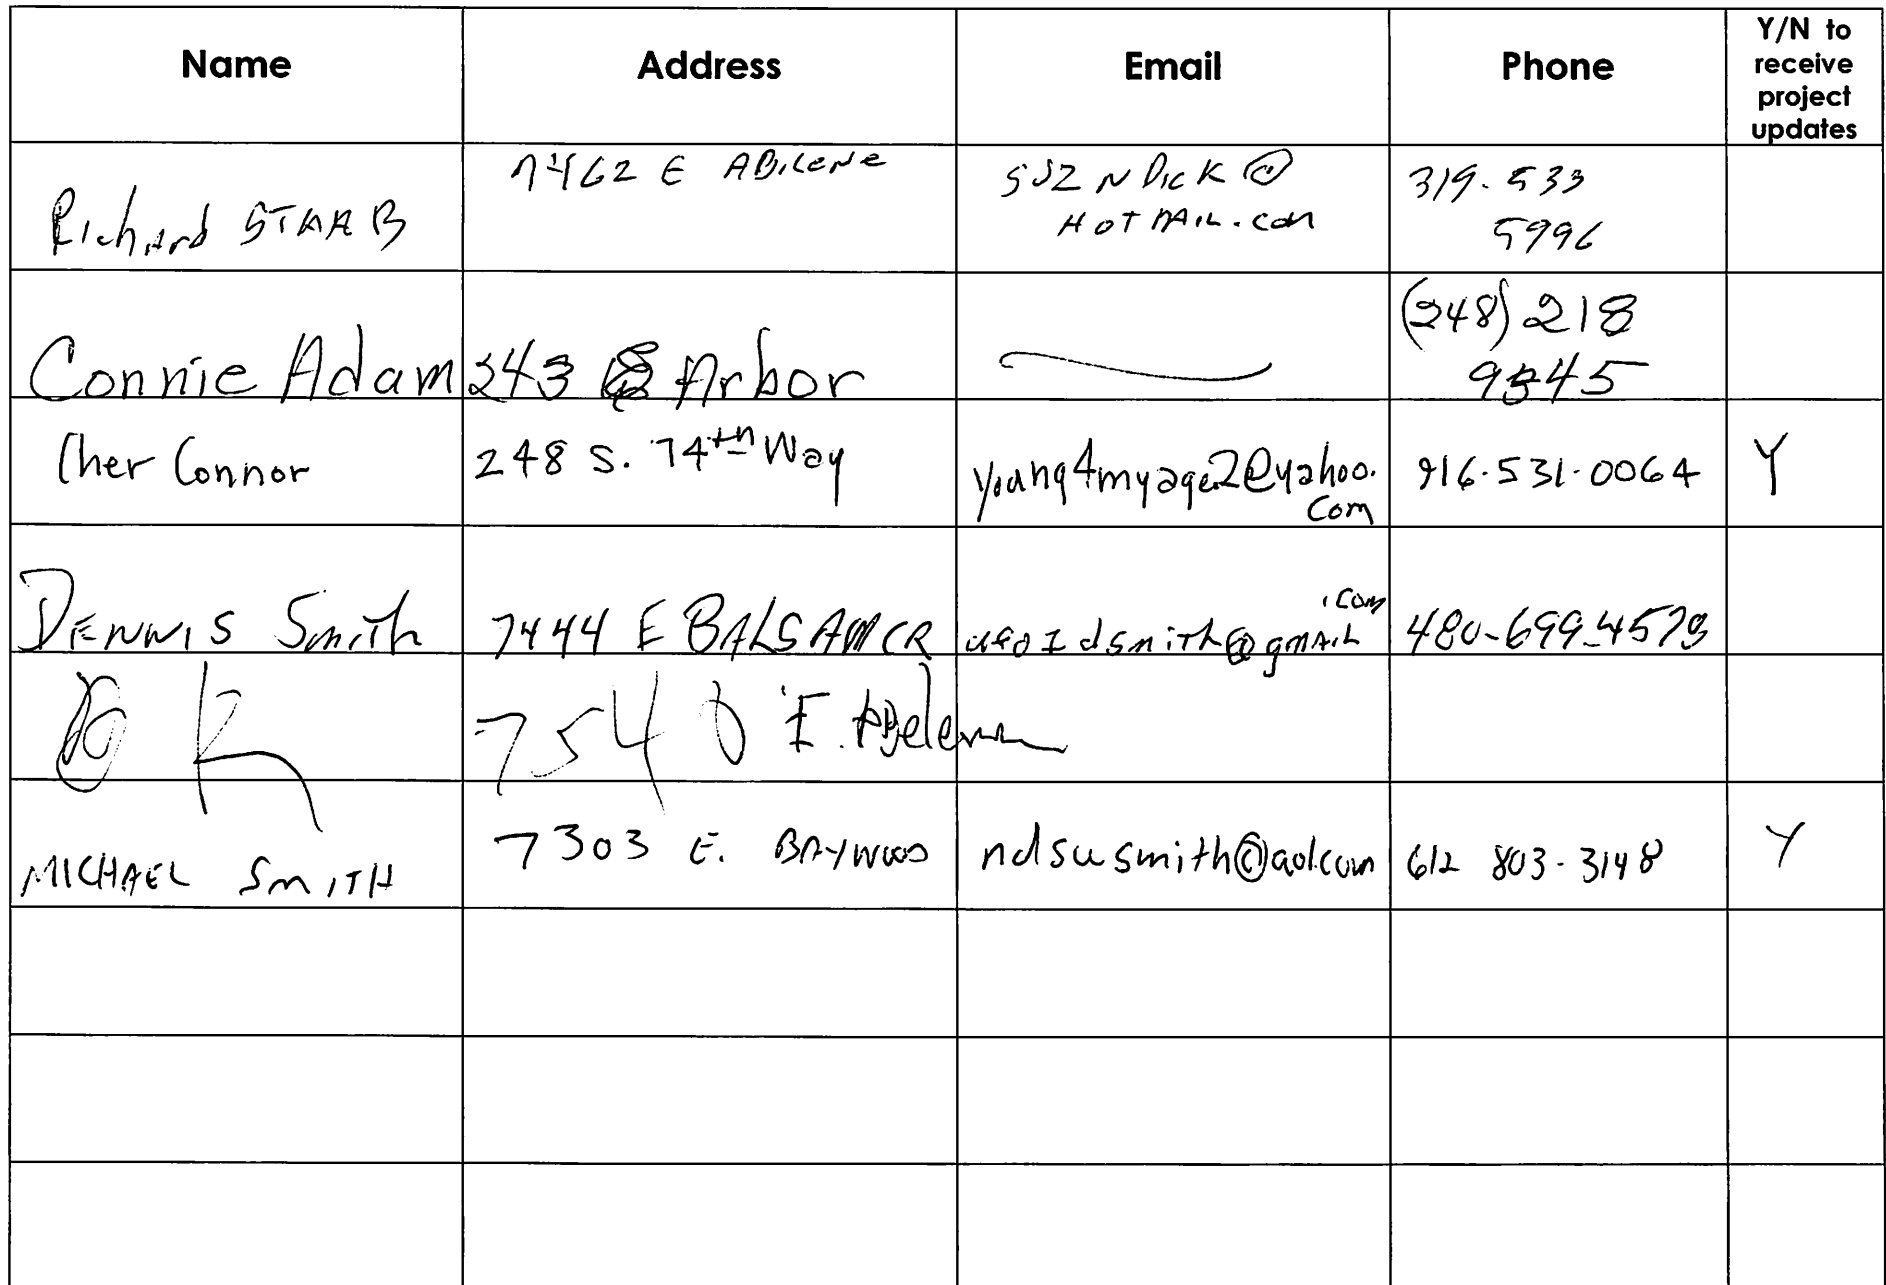 Name Address Email Phone Y/N to receive project updates
Richard STAAB 7462 E ABILENE @ HOTMAIL.COM 319-533 5996
Connie Adam 243 Arbor (248) 218 9345
Cher Connor 248 S. 74th Way young4myage2@yahoo.com 916-531-0064 Y
DENNIS Smith 7444 E BALSAM CR .com 480-699-4573
7540 E.
MICHAEL SMITH 7303 E. BAYWOOD ndsusmith@aol.com 612 803-3148 Y